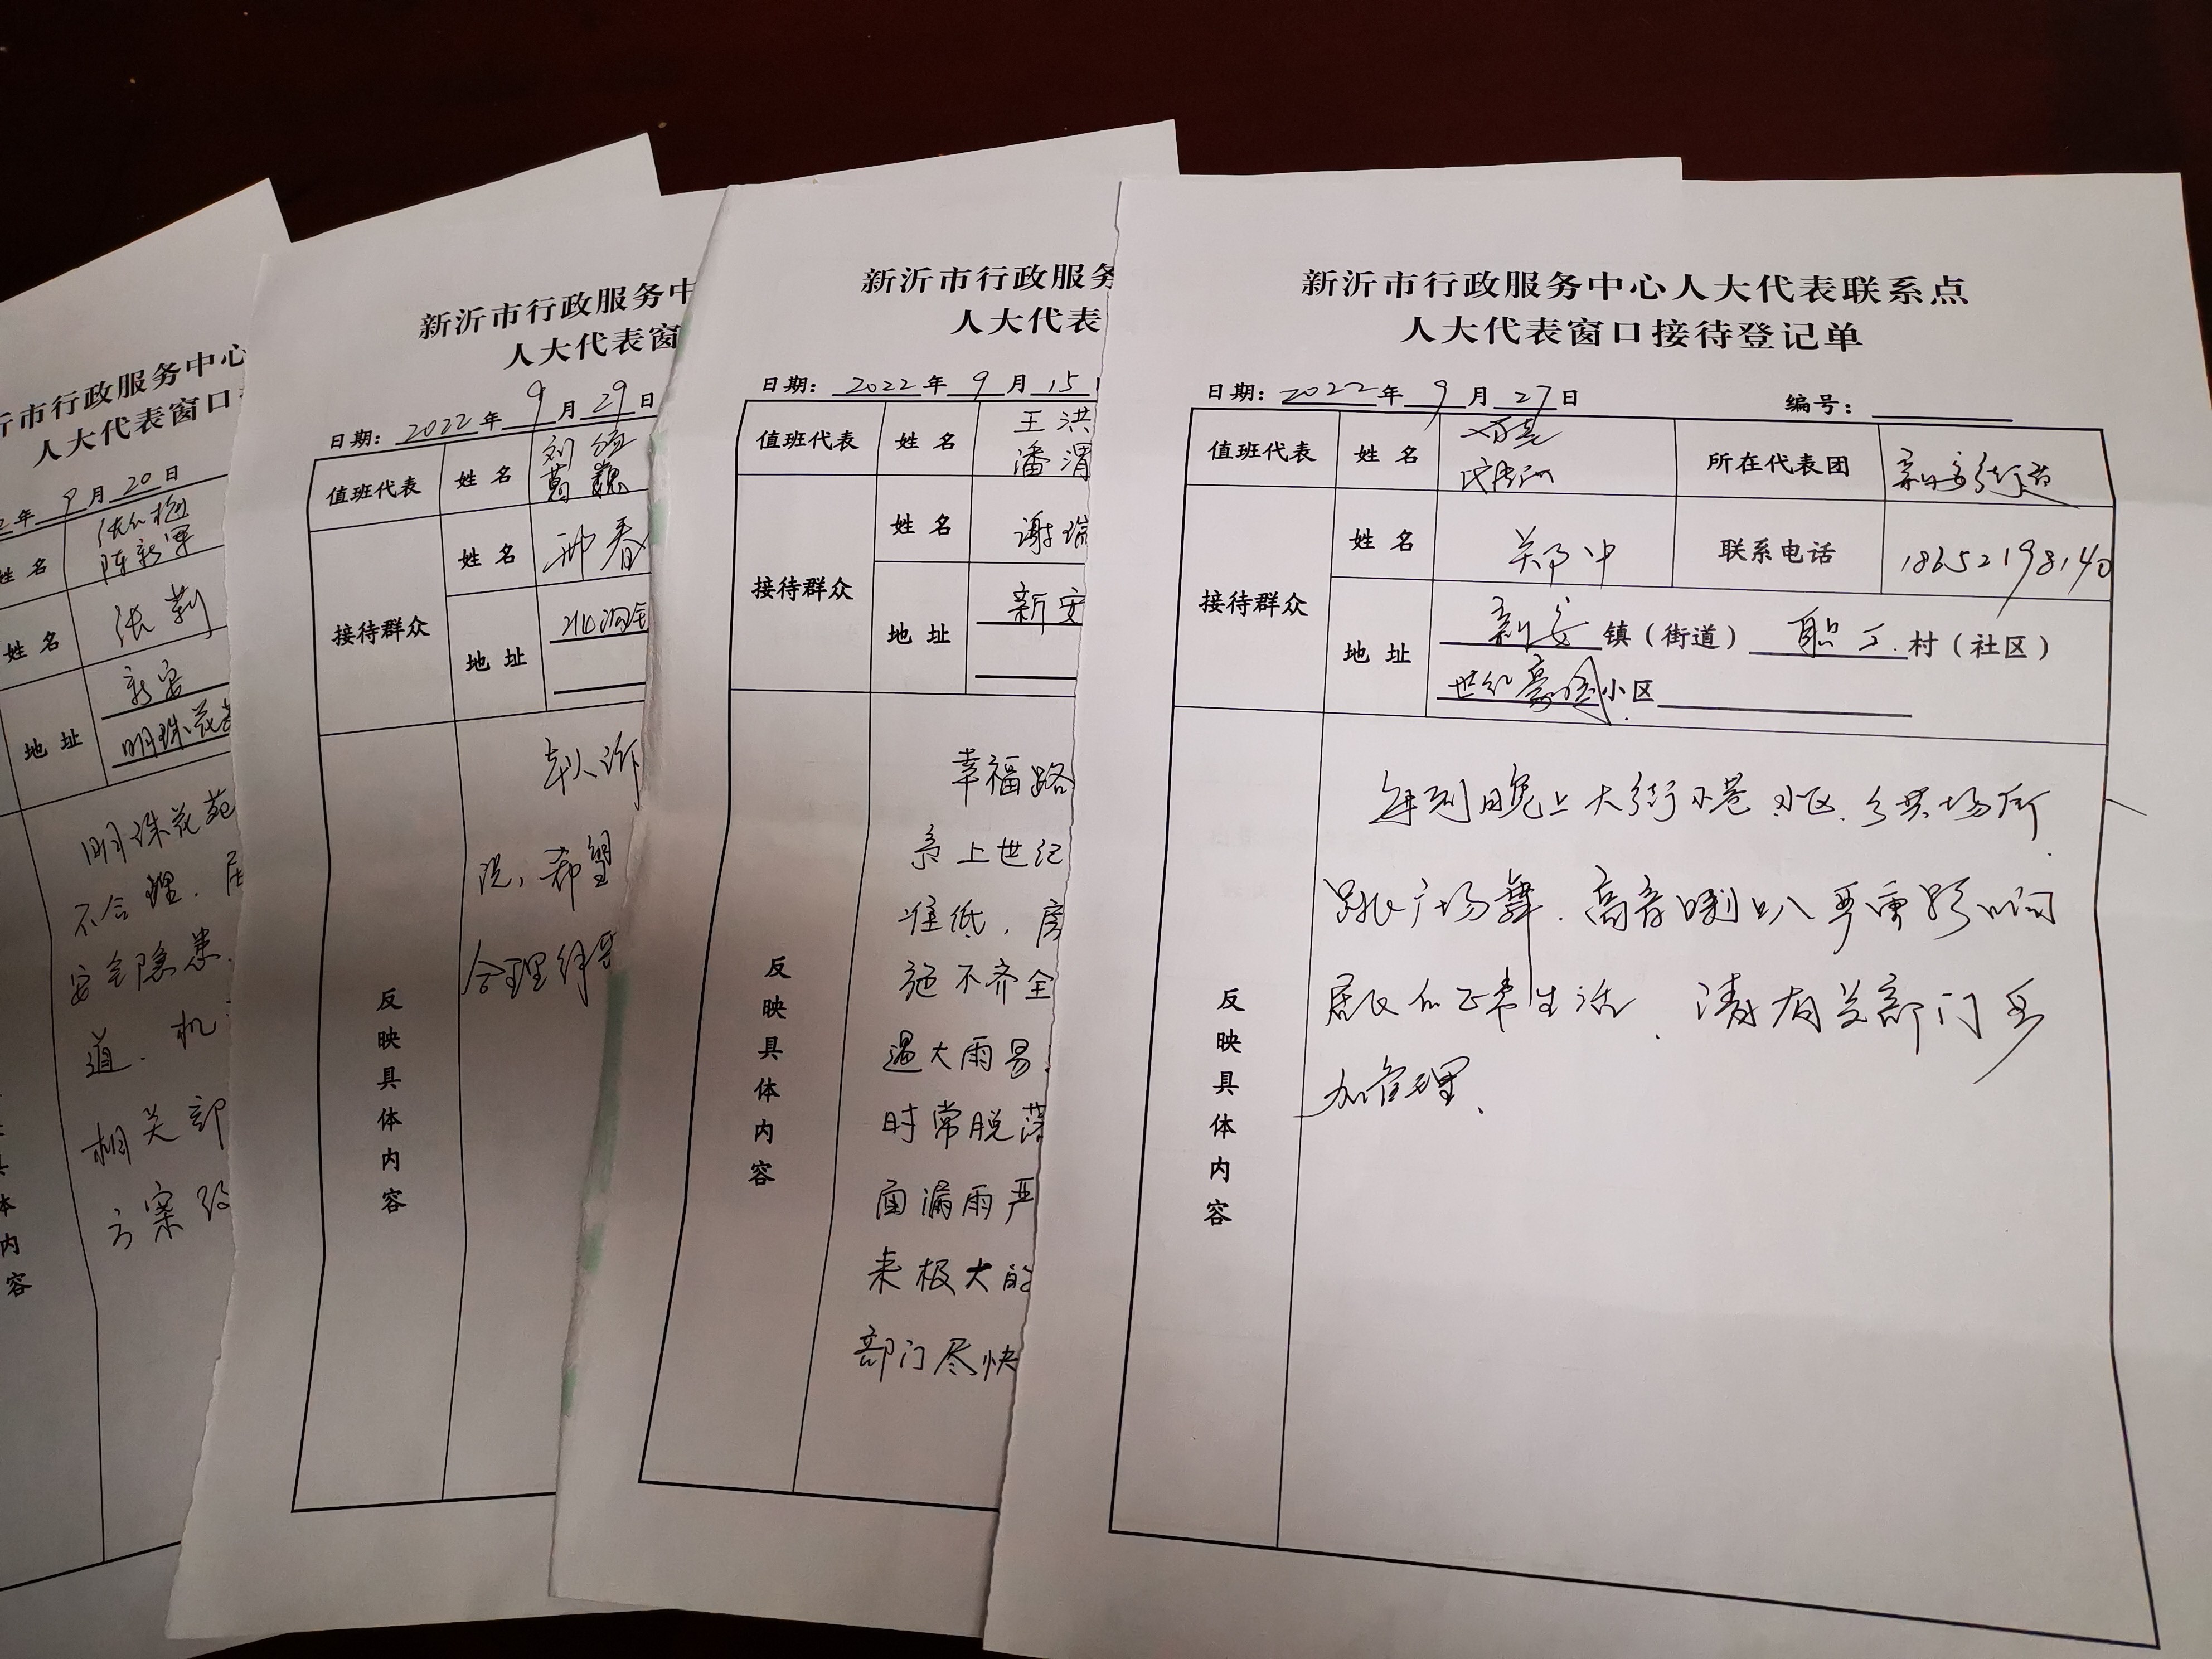 新沂市行政服务中心人大代表联系点
人大代表窗口接待登记单
日期：2022年9月27日 编号：
值班代表 姓名 所在代表团 新安街道
接待群众 姓名 郑中 联系电话 18652198140
地址 新安镇（街道）职工村（社区）
世纪豪园小区
反映具体内容
每到晚上大街小巷、小区、公共场所
跳广场舞、高音喇叭严重影响
居民的正常生活、请有关部门多
加管理、
新沂市行政服务
人大代表
日期：2022年9月15
值班代表 姓名 王洪
潘渭
接待群众 姓名 谢瑞
地址 新安
反映具体内容
幸福路
系上世纪
准低，房
施不齐全
遇大雨易
时常脱落
面漏雨严
来极大的
部门尽快
新沂市行政服务中
人大代表窗
日期：2022年9月29日
值班代表 姓名 刘
葛巍
接待群众 姓名 邢春
地址 北沟
反映具体内容
本人诉
说，希望
合理
沂市行政服务中心
人大代表窗口
年9月20日
姓名
陈新军
姓名 张莉
地址 新安
明珠花
明珠花苑
不合理、居
安全隐患、
道、机
相关部
方案
本
内
容